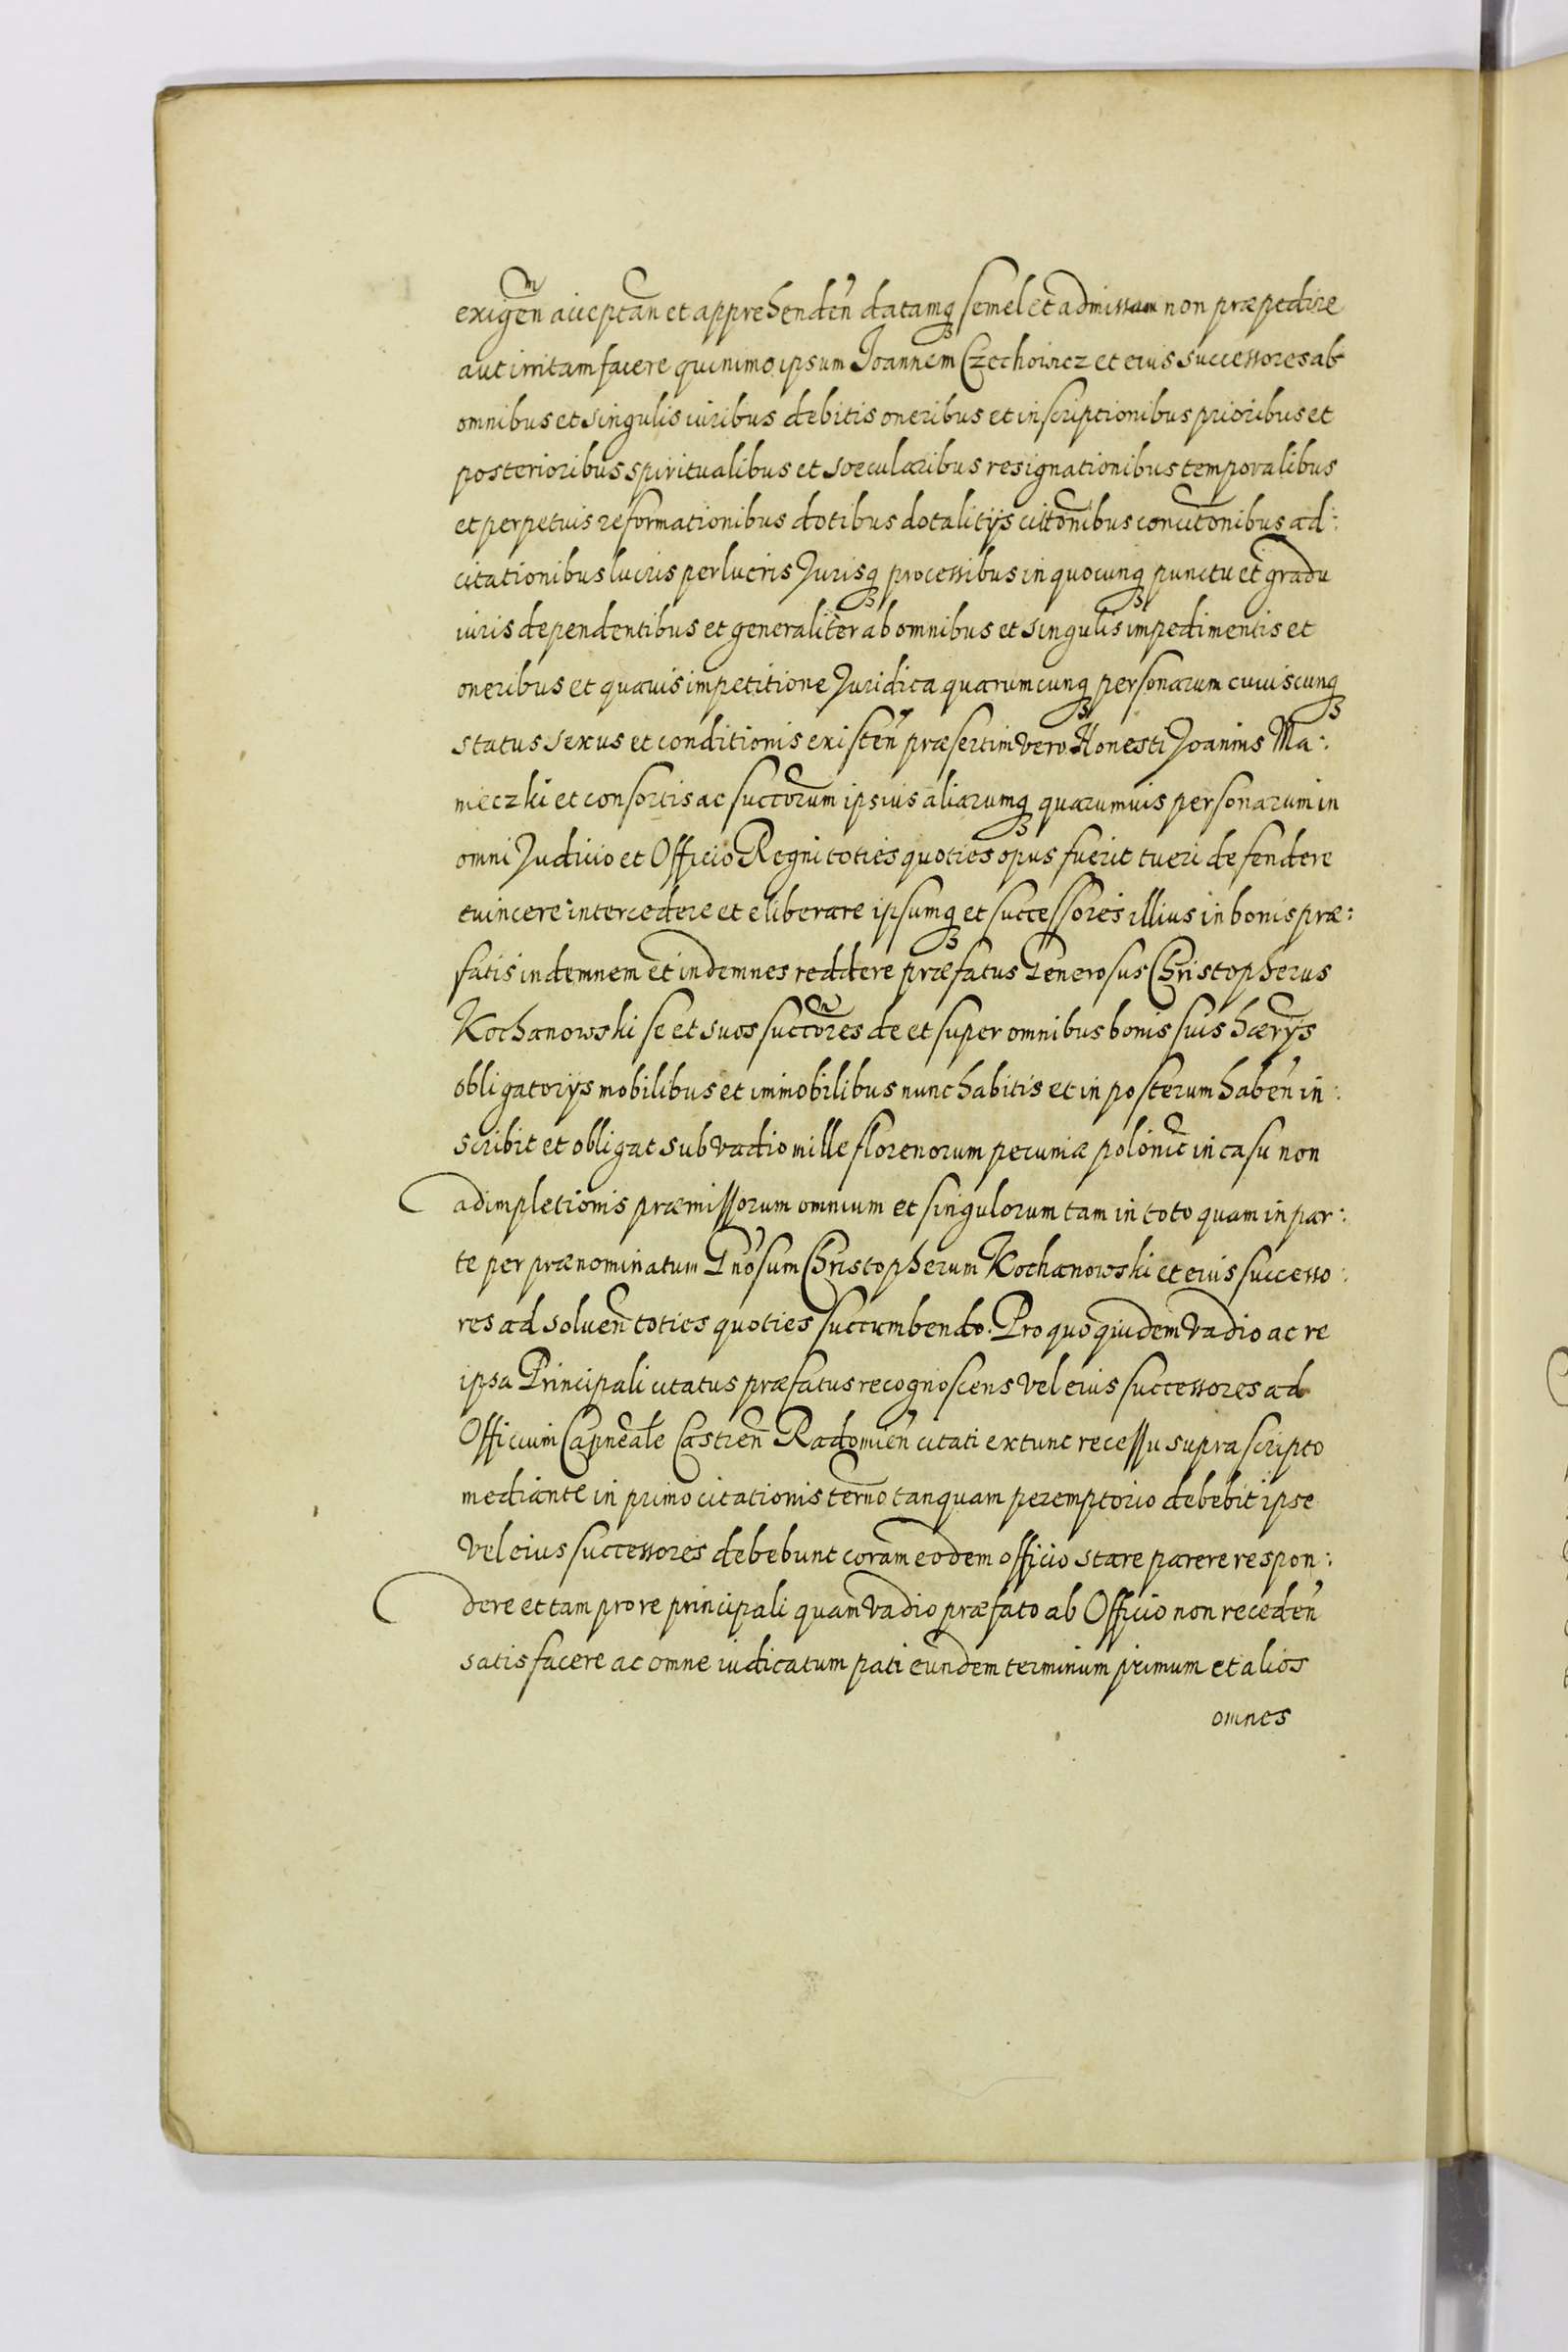 exigen̄ acceptan̄ et apprehenden̄ datamq₃ semel et admissam non præpedire
aut irritam facere quinimo ipsum Joannem Czechowicz et eius successores ab
omnibus et singulis iuribus debitis oneribus et inscriptionibus prioribus et
posterioribus spiritualibus et sæcularibus resignationibus temporalibus
et perpetuis reformationibus dotibus dotalitijs cit̄onibus concit̄onibus ad:
citationibus lucris perlucris Jurisq₃ processibus in quocunq₃ punctu et gradu
iuris dependentibus et generaliter ab omnibus et singulis impedimentis et
oneribus et quavis impetitione Juridica quarumcunq₃ personarum cuiuscunq₃
status sexus et conditionis existen̄ præsertim vero Honesti Joannis Ma:
nieczki et consortis ac succ̄orum ipsius aliarumq₃ quarumvis personarum in
omni Judicio et Officio Regni toties quoties opus fuerit tueri defendere
evincere intercedere et eliberare ipsumq₃ et successores illius in bonis præ:
fatis indemnem et indemnes reddere præfatus Generosus Christopherus
Kochanowski se et suos succ̄ores de et super omnibus bonis suis hærijs
obligatorijs mobilibus et immobilibus nunc habitis et in posterum haben̄ in:
scribit et obligat sub vadio mille florenorum pecuniæ polonic̄ in casu non
adimpletionis præmissorum omnium et singulorum tam in toto quam in par:
te per prænominatum Gnōsum Christopherum Kochanowski et eius successo:
res ad solven̄ toties quoties succumbendo. Pro quo quidem vadio ac re
ipsa Principali citatus præfatus recognoscens vel eius successores ad
Officium Capneāle Castren̄ Radomien̄ citati ex tunc recessu suprascripto
mediante in primo citationis term̄o tanquam peremptorio debebit ipse
vel eius successores debebunt coram eodem officio stare parere respon:
dere et tam pro re principali quam vadio præfato ab Officio non receden̄
satisfacere ac omne iudicatum pati eundem terminum primum et alios
omnes